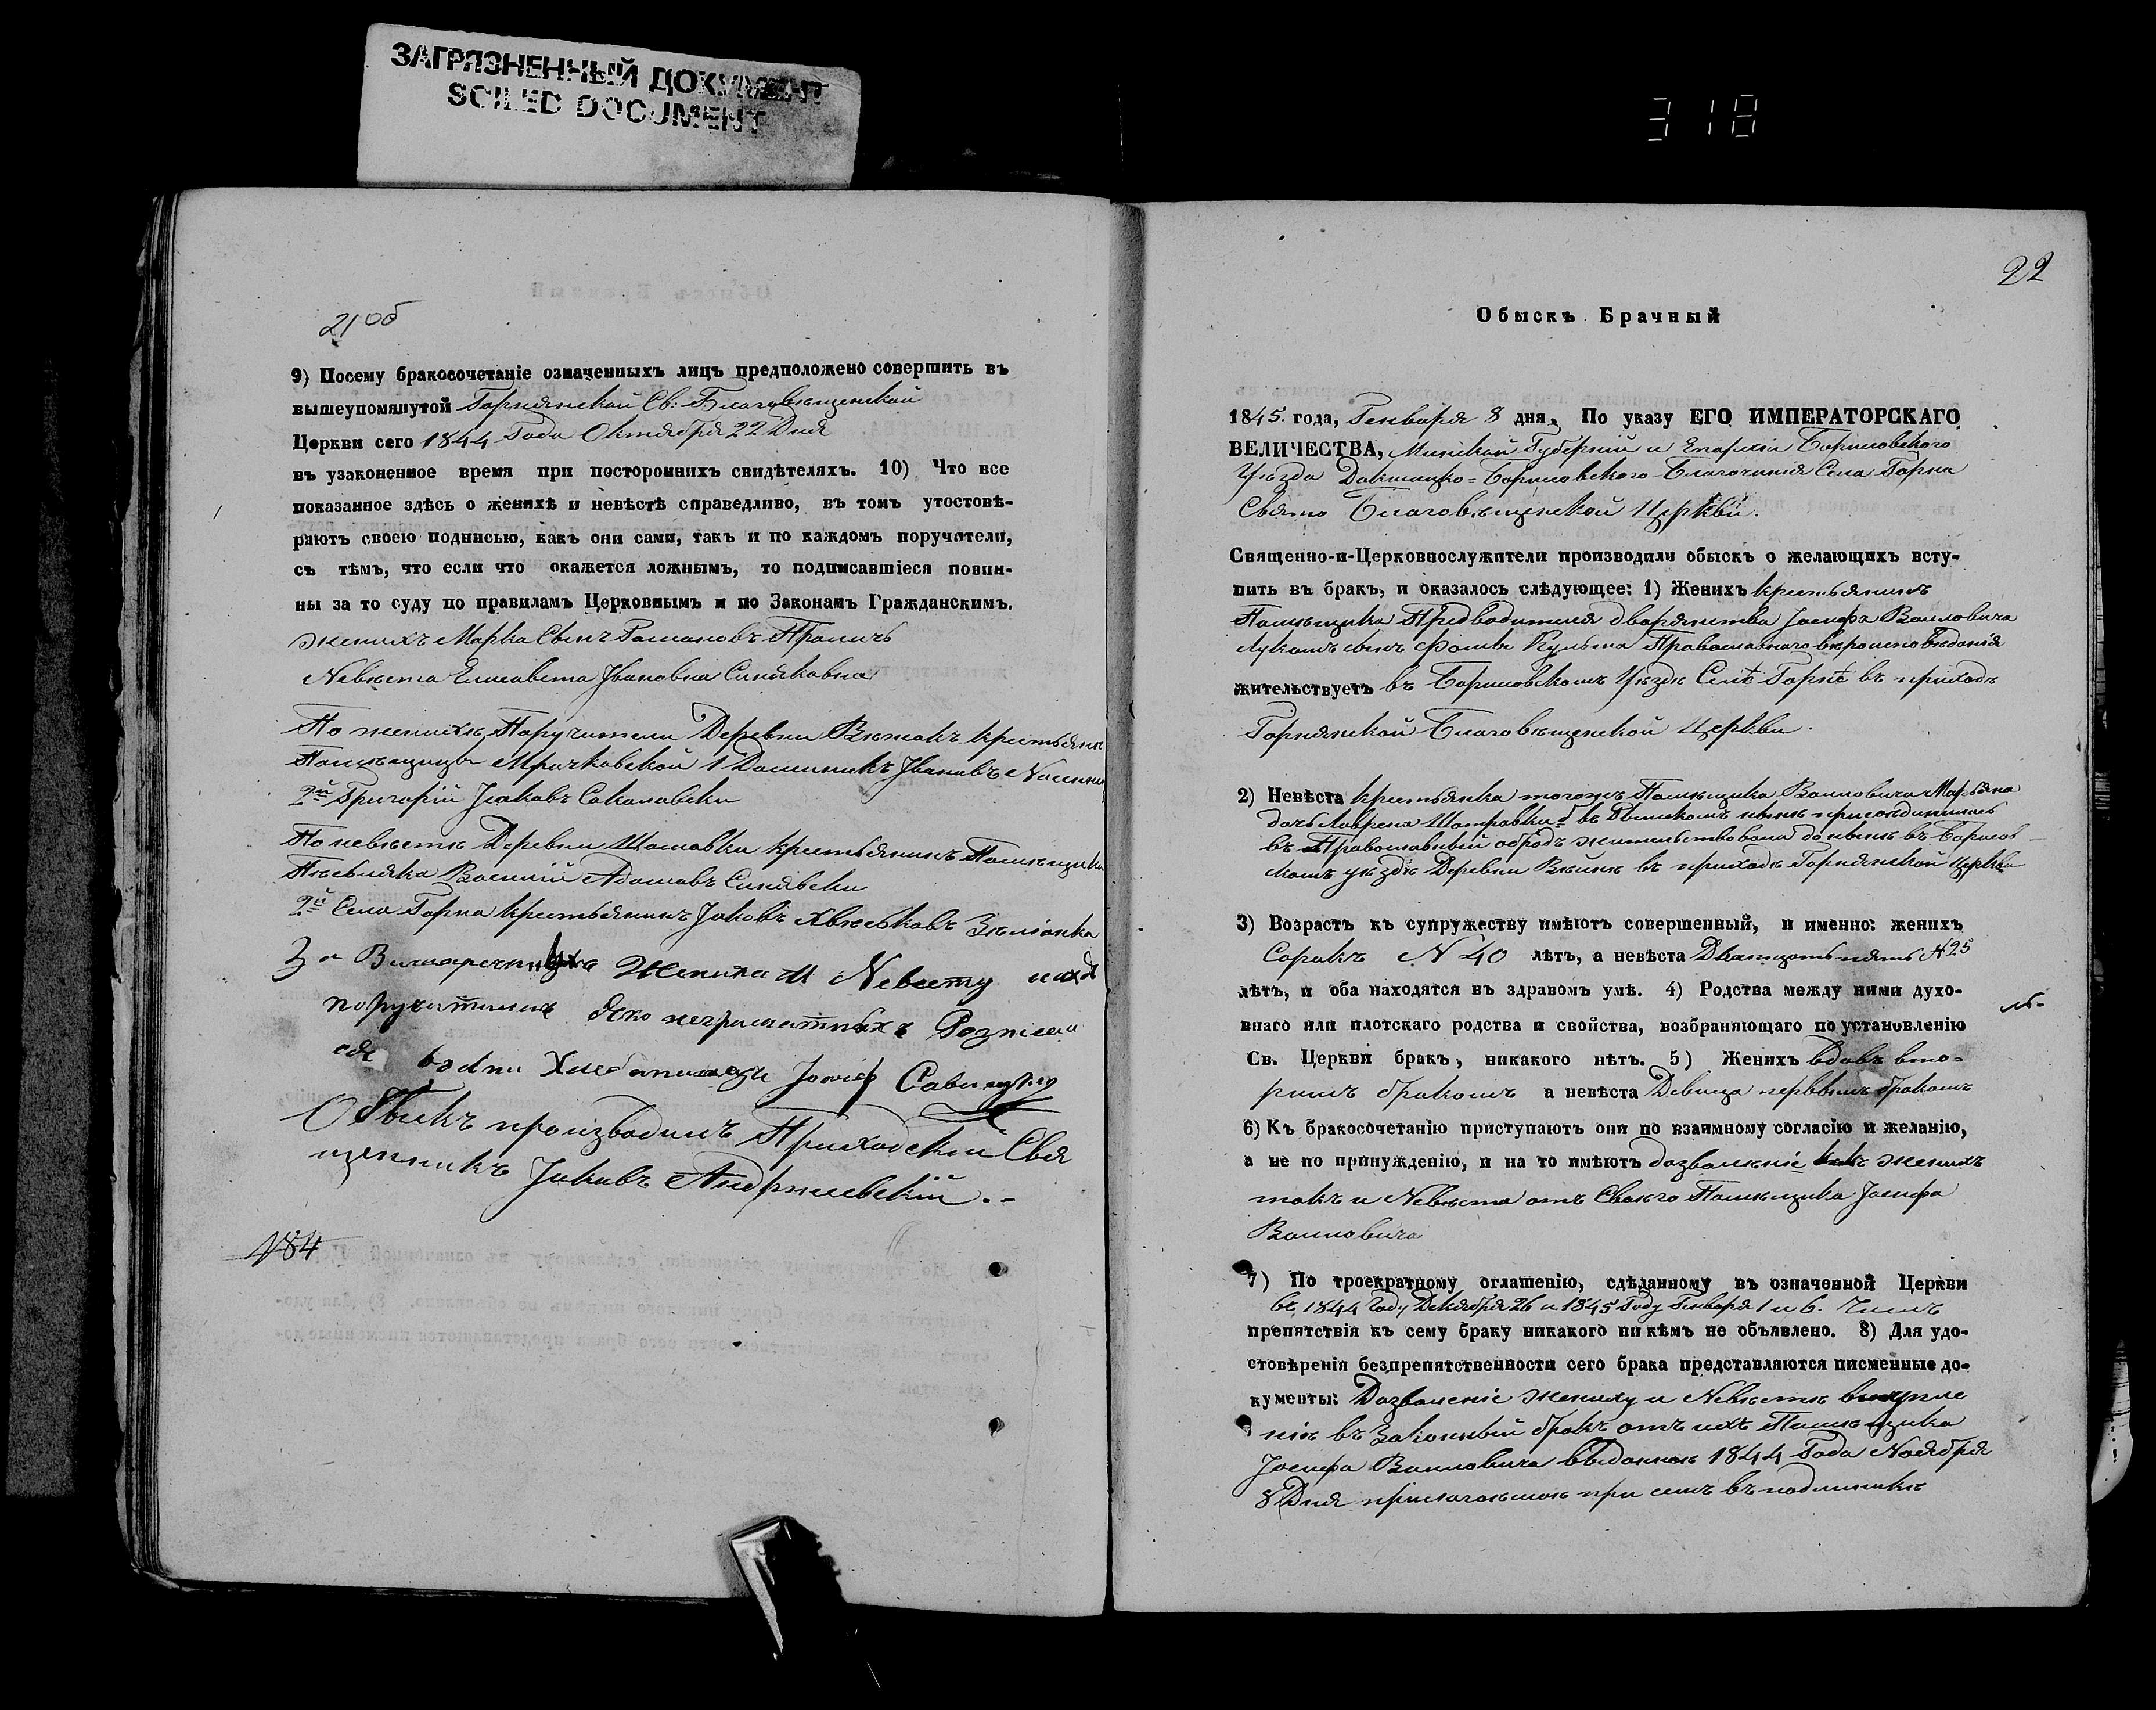 ЗАГРЯЗНЕННЫЙ ДОКУМЕНТ
SOILED DOCUMENT
318
21 об
9) Посему бракосочетаніе означенныхъ лицъ предположено совершить въ
вышеупомянутой Горнянской Св: Благовѣщенской
Церкви сего 1844 Года Октября 22 Дня
въ узаконенное время при постороннихъ свидѣтеляхъ. 10) Что все
показанное здѣсь о женихѣ и невѣстѣ справедливо, въ томъ утостовѣ-
ряютъ своею подписью, какъ они сами, такъ и по каждомъ поручители,
съ тѣмъ, что если что окажется ложнымъ, то подписавшіеся повин-
ны за то суду по правиламъ Церковнымъ и по Законамъ Гражданскимъ.
женихъ Марко Сынъ Романовъ
Невѣста Елисавета Ивановна Синяковна
По женихѣ Поручители Деревни крестьяне
Помѣщицы Мрачковской 1 Доминикъ Ивановъ
2й Григорій Іаковъ Соколовски
По невѣстѣ Деревни Шамовки крестьянинъ Помѣщика
Василій Адамовъ Синявски
2й Села Горна крестьянинъ Іаковъ
За Жениха и Невесту
поручителей яко неграматныхъ Розписал
ся Іосиф
Обыскъ производилъ Приходскій Свя
щенникъ Іаковъ
184
22
Обыскъ Брачный
1845. года, Генваря 8 дня. По указу ЕГО ИМПЕРАТОРСКАГО
ВЕЛИЧЕСТВА, Минской Губерніи и Епархіи Борисовскаго
Уѣзда Докшицко=Борисовскаго Благочинія Села Горна
Свято Благовѣщенской Церкви.
Священно-и-Церковнослужители производили обыскъ о желающихъ всту-
пить въ бракъ, и оказалось слѣдующее: 1) Женихъ крестьянинъ
Помѣщика Предводителя дворянства Іосифа Воловича
Лукашъ сынъ Фомы Православнаго вѣроисповѣданія
жительствуетъ въ Борисовскомъ Уѣздѣ Селѣ Горнѣ въ приходѣ
Горнянской Благовѣщенской Церкви.
2) Невѣста крестьянка тогожъ Помѣщика Воловича Марьяна
дочь Лаврена въ Римскомъ нынѣ присоединилась
въ Православный обрядъ жительствовала донынѣ въ Борисов
скомъ уѣздѣ Деревни въ приходѣ Горнянской Церкви
3) Возрастъ къ супружеству имѣютъ совершенный, и именно: женихъ
Сорокъ N 40 лѣтъ, а невѣста Дватцать пять N 25
лѣтъ, и оба находятся въ здравомъ умѣ. 4) Родства между ними духо-
внаго или плотскаго родства и свойства, возбраняющаго по установленію
Св. Церкви бракъ, никакого нѣтъ. 5) Женихъ вдовъ вто-
рымъ бракомъ а невѣста Девица первымъ бракомъ
6) Къ бракосочетанію приступаютъ они по взаимному согласію и желанію,
а не по принужденію, и на то имѣютъ дозволеніе какъ женихъ
такъ и Невѣста отъ Своего Помѣщика Іосифа
Воловича
7) По троекратному оглашенію, сдѣланному въ означенной Церкви
въ 1844 Году Декабря 26 и 1845 Году Генваря 1 и 6. Числъ
препятствія къ сему браку никакого никѣмъ не объявлено. 8) Для удо-
стовѣренія безпрепятственности сего брака представляются писменные до-
кументы: Дозволеніе жениху и Невѣстѣ вступле
нія въ Законный бракъ отъ ихъ Помѣщика
Іосифа Воловича выданное 1844 Года Ноября
8 Дня прилагаемое при семъ въ подлинникѣ